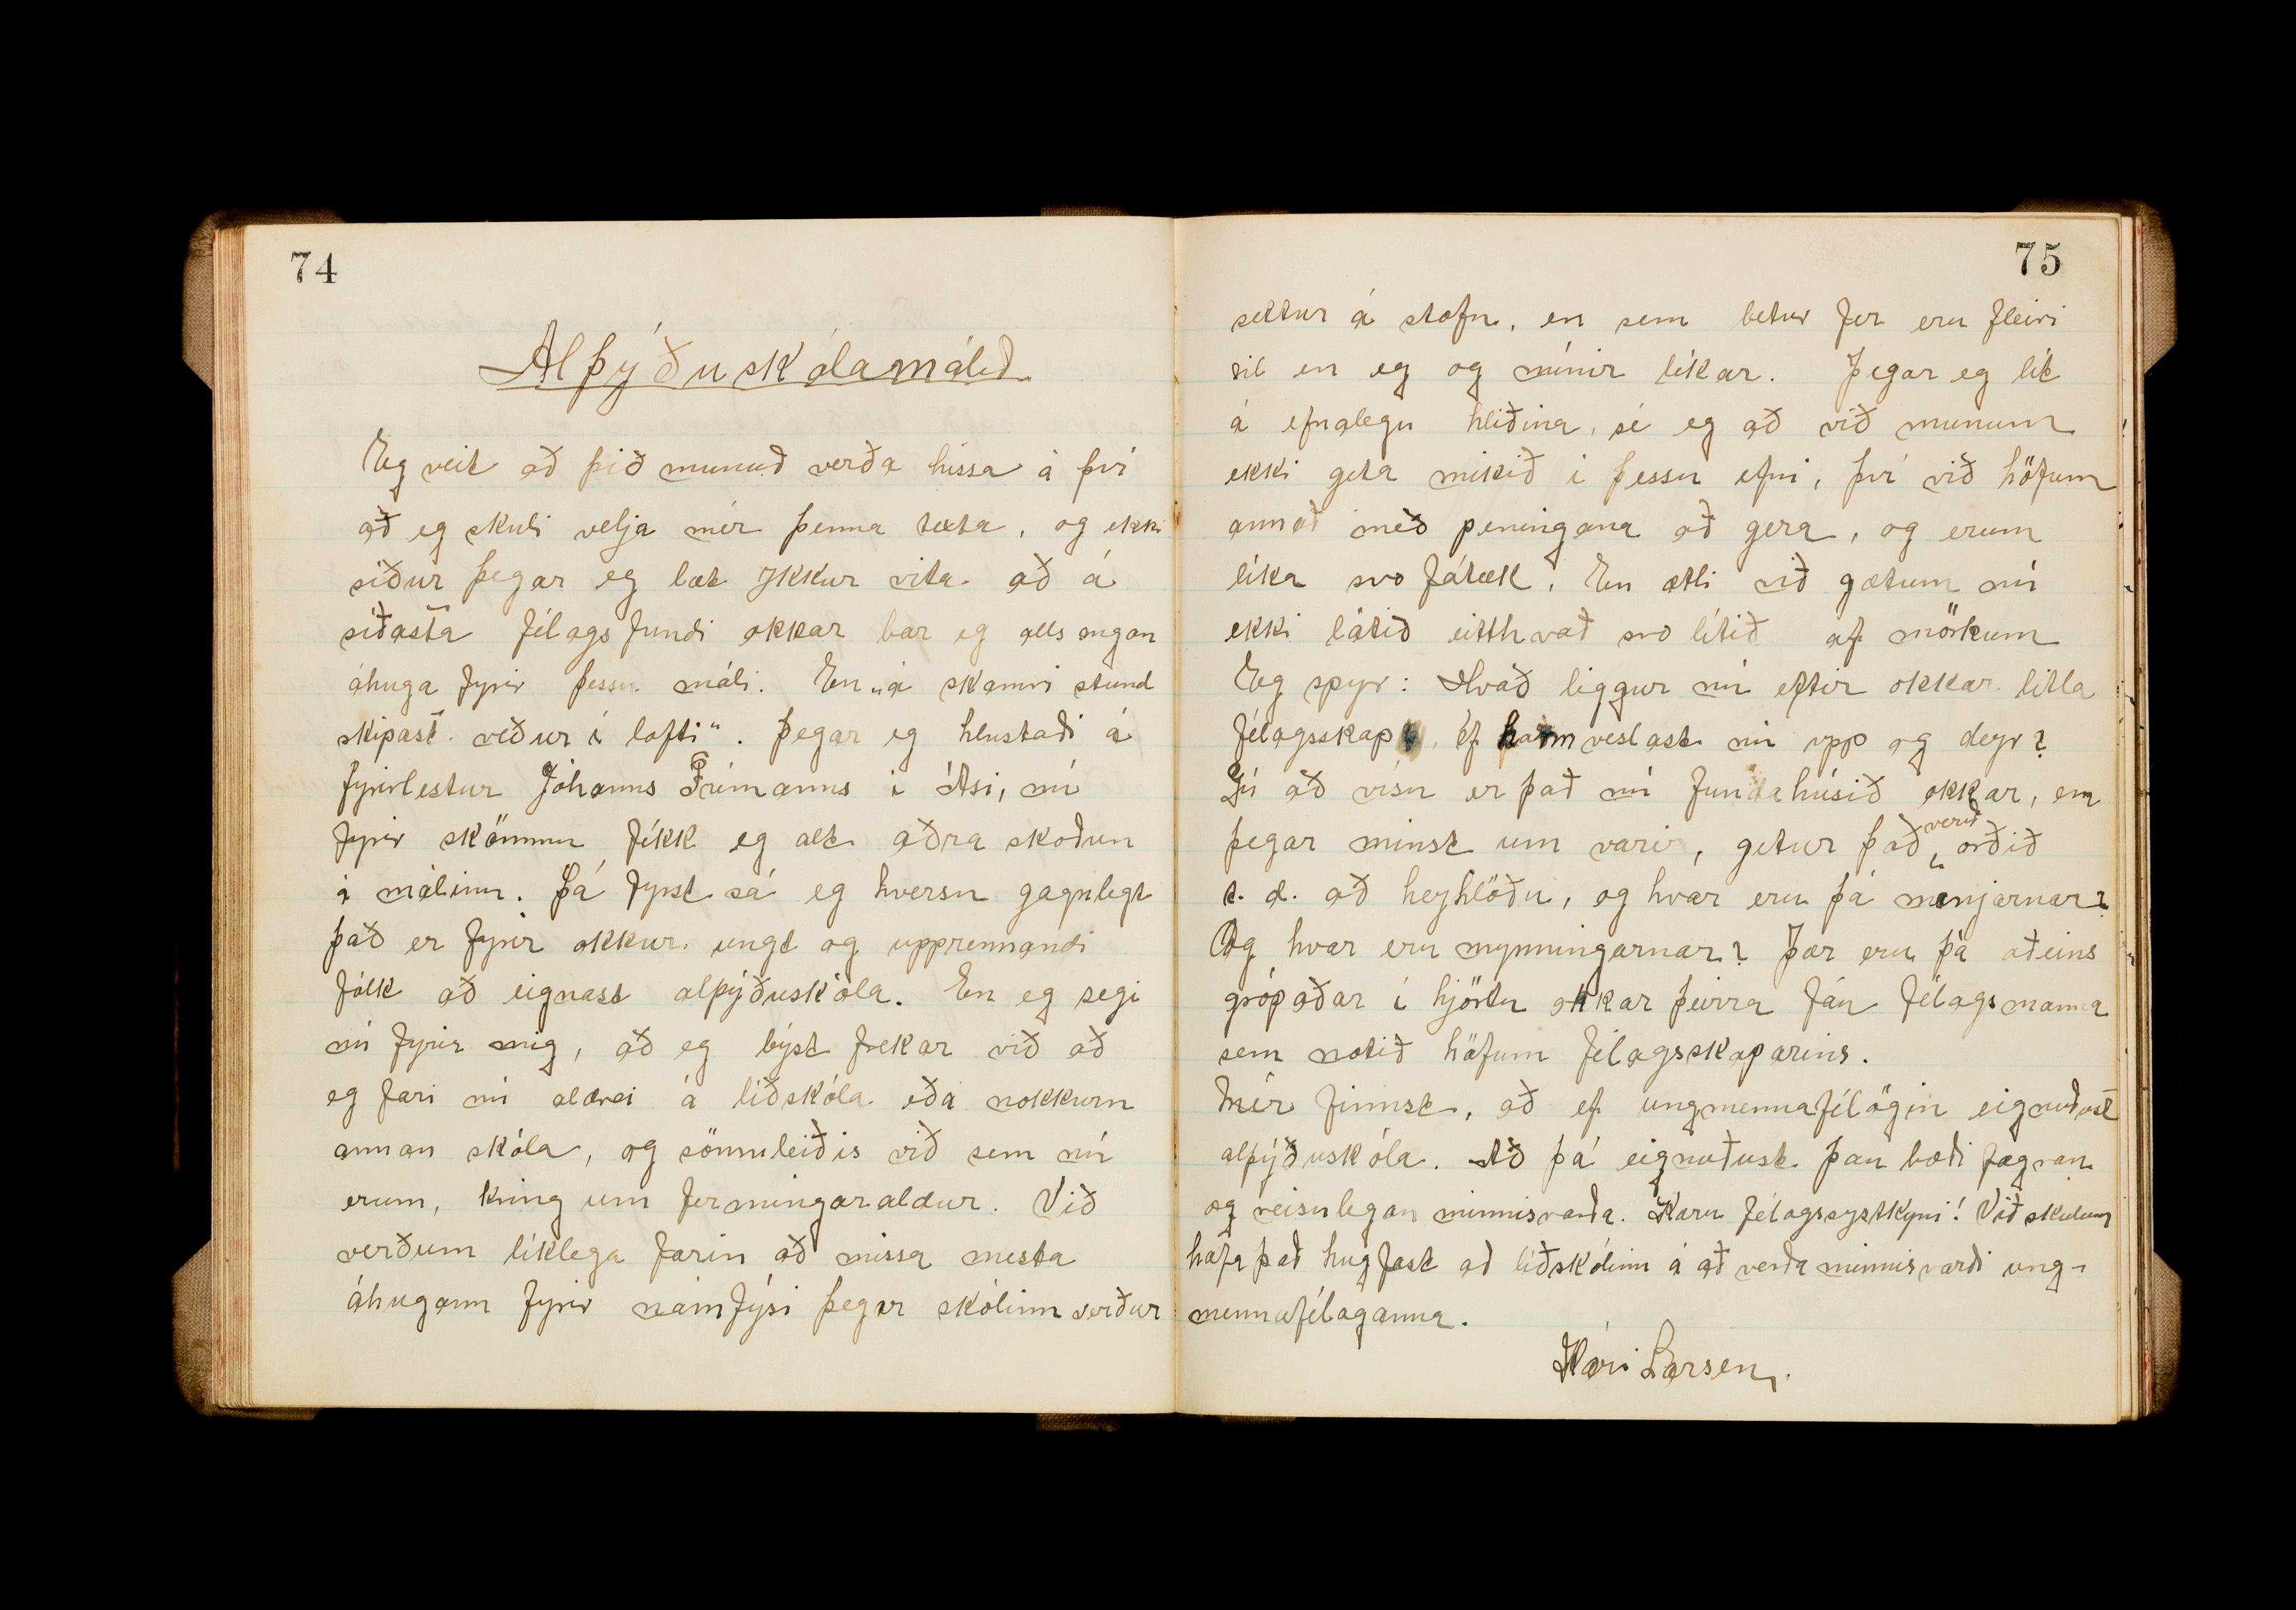 74
Alþýðuskólamálið
Eg veit að þið munuð verða hissa á því
að eg skuli velja mér þenna texta, og ekki
síður þegar eg læt ykkur vita að á
síðasta félagsfundi okkar bar eg alls engan
áhuga fyrir þessu máli. En „á skamri stund
skipast veður í lofti“. Þegar eg hlustaði á
fyrirlestur Jóhanns Frímanns í Ási, nú
fyrir skömmu fékk eg alt aðra skoðun
á málinu. Þá fyrst sá eg hversu gagnlegt
það er fyrir okkur ungt og upprennandi
fólk að eignast alþýðuskóla. En eg segi
nú fyrir mig, að eg býst frekar við að
eg fari nú aldrei á líðskóla eða nokkurn
annan skóla, og sömuleiðis við sem nú
erum, kring um fermingaraldur. Við
verðum líklega farin að missa mesta
áhugann fyrir námfýsi þegar skólinn verður
75
settur á stofn, en sem betur fer eru fleiri
til en eg og mínir líkar. Þegar eg lít
á efnalegu hliðina, sé eg að við munum
ekki geta mikið í þessu efni, því við höfum
annað með peningana að gera, og erum
líka svo fátæk. En ætli við gætum nú
ekki látið eitthvað svo lítið af mörkum
Eg spyr: Hvað liggur nú eftir okkar litla
félagsskap, ef hann veslast nú upp og deyr?
Jú að vísu er það nú fundahúsið okkar, en
þegar minst um varir, getur það verið orðið
t. d. að heyhlöðu, og hvar eru þá menjarnar?
Og hvar eru mynningarnar? Þær eru þá aðeins
grópaðar í hjörtu okkar þeirra fáu félagsmanna
sem notið höfum félagsskaparins.
Mér finnst, að ef ungmennafélögin eignuðust
alþýðuskóla. Að þá eignuðust þau bæði fagran
og reisulegan minnisvarða. Kæru félagssystkyni! Við skulum
hafa það hugfast að líðskólinn á að verða minnisvarði ung-
mennafélaganna.
Kári Larsen.